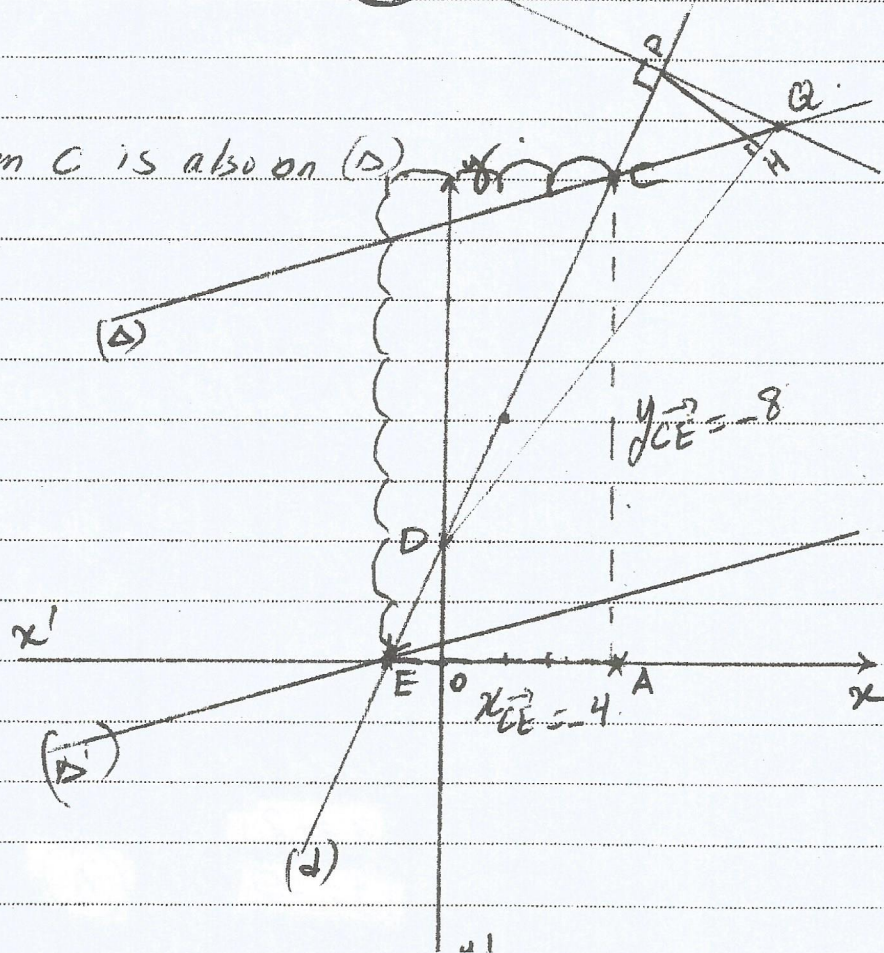 P
Q
n C is also on (Δ)
y
C
H
(Δ)
y CE = -8
D
x'
E
O
A
x
x CE = -4
(Δ')
(d)
y'